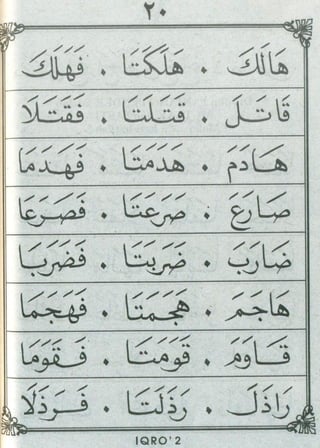 ٢٠
هَالَكَ . هَلَكَتَا . فَهَلَكَ
قَاتَلَ . قَتَلَتَا . فَقَتَلَا
هَادَمَ . هَدَمَتَا . فَهَدَمَا
صَارَعَ . صَرَعَتَا . فَصَرَعَا
ضَارَبَ . ضَرَبَتَا . فَضَرَبَا
هَاجَمَ . هَجَمَتَا . فَهَجَمَا
قَاوَمَ . قَوَمَتَا . فَقَوَمَا
رَاذَلَ . رَذَلَتَا . فَرَذَلَا
IQRO'2